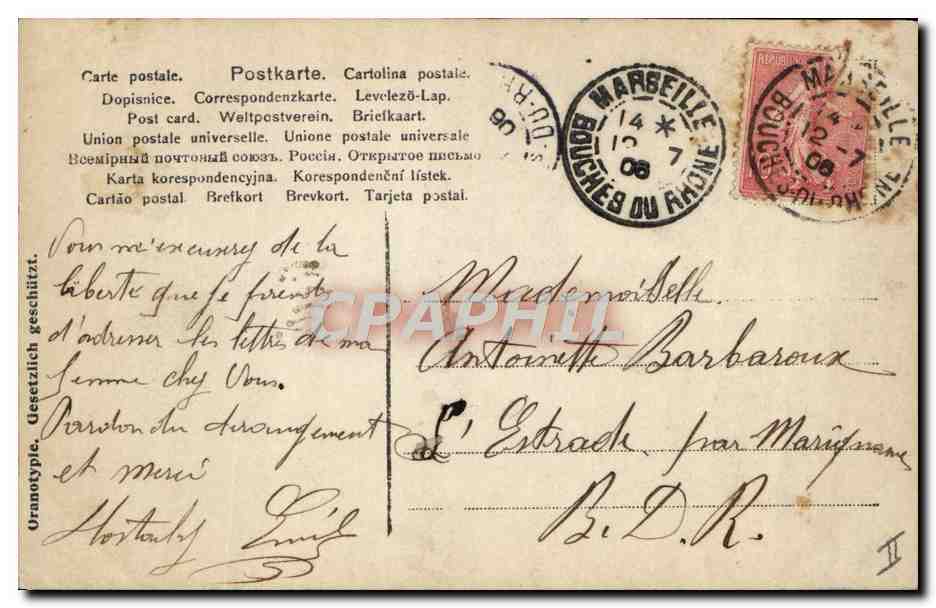 Carte postale. Postkarte. Cartolina postale.
Dopisnice. Correspondenzkarte. Levelezö-Lap.
Post card. Weltpostverein. Briefkaart.
Union postale universelle. Unione postale universale
Всемірный почтовый союзъ. Россія. Открытое письмо
Karta korespondencyjna. Korespondenční lístek.
Cartão postal. Brefkort. Brevkort. Tarjeta postal.
Uranotypie. Gesetzlich geschützt.
S-DU-RH
06
MARSEILLE
14 *
12 7
06
BOUCHES DU RHONE
MARSEILLE
12 -7
06
BOUCHES-DU-RHONE
Vous m'excuserez de la
liberté que je prends
d'adresser les lettres de ma
femme chez Vous.
Pardon du derangement
et merci
Emile
Mademoiselle
Antoinette Barbaroux
L'Estrade par Marignane
B. D. R.
II
CPAPHIL